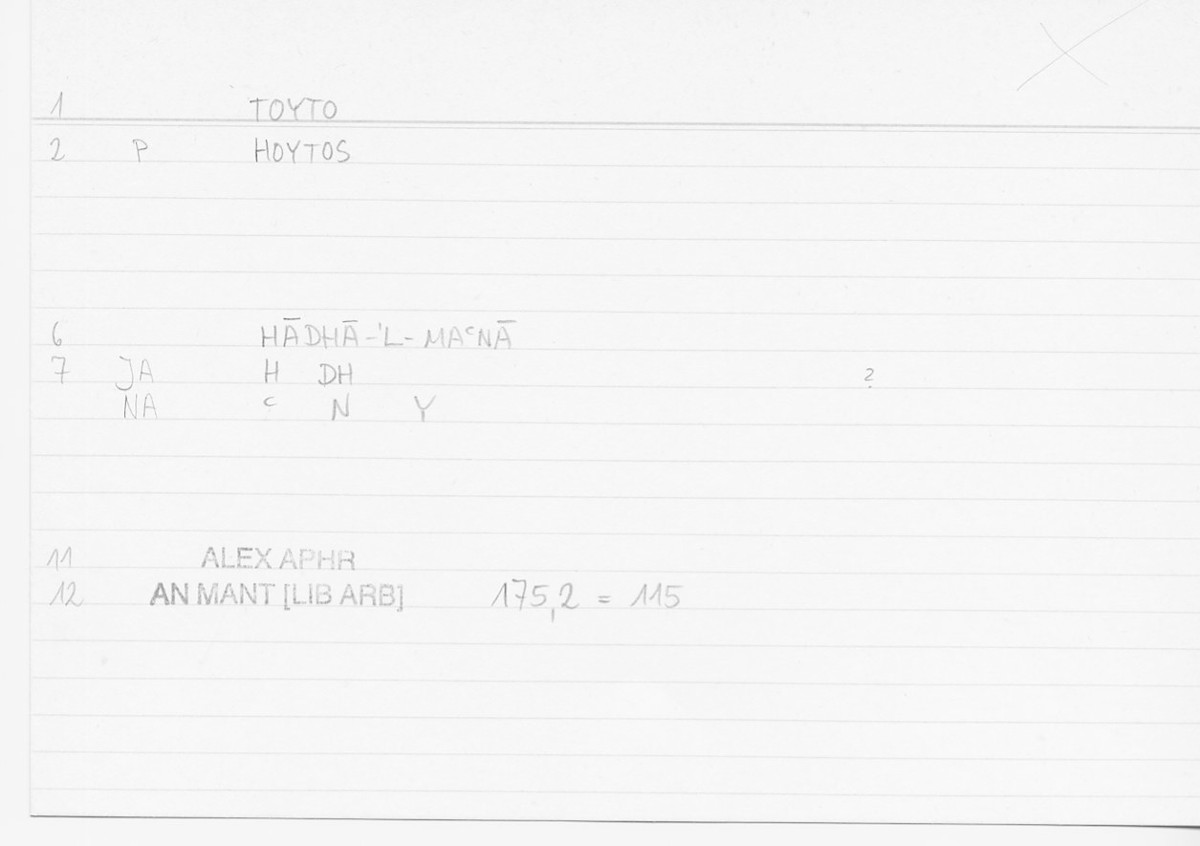 1 TOYTO
2 P HOYTOS
6 HĀDHĀ-'L-MAʿNĀ
7 JA H DH ?
NA ʿ N Y
11 ALEX APHR
12 AN MANT [LIB ARB] 175,2 = 115